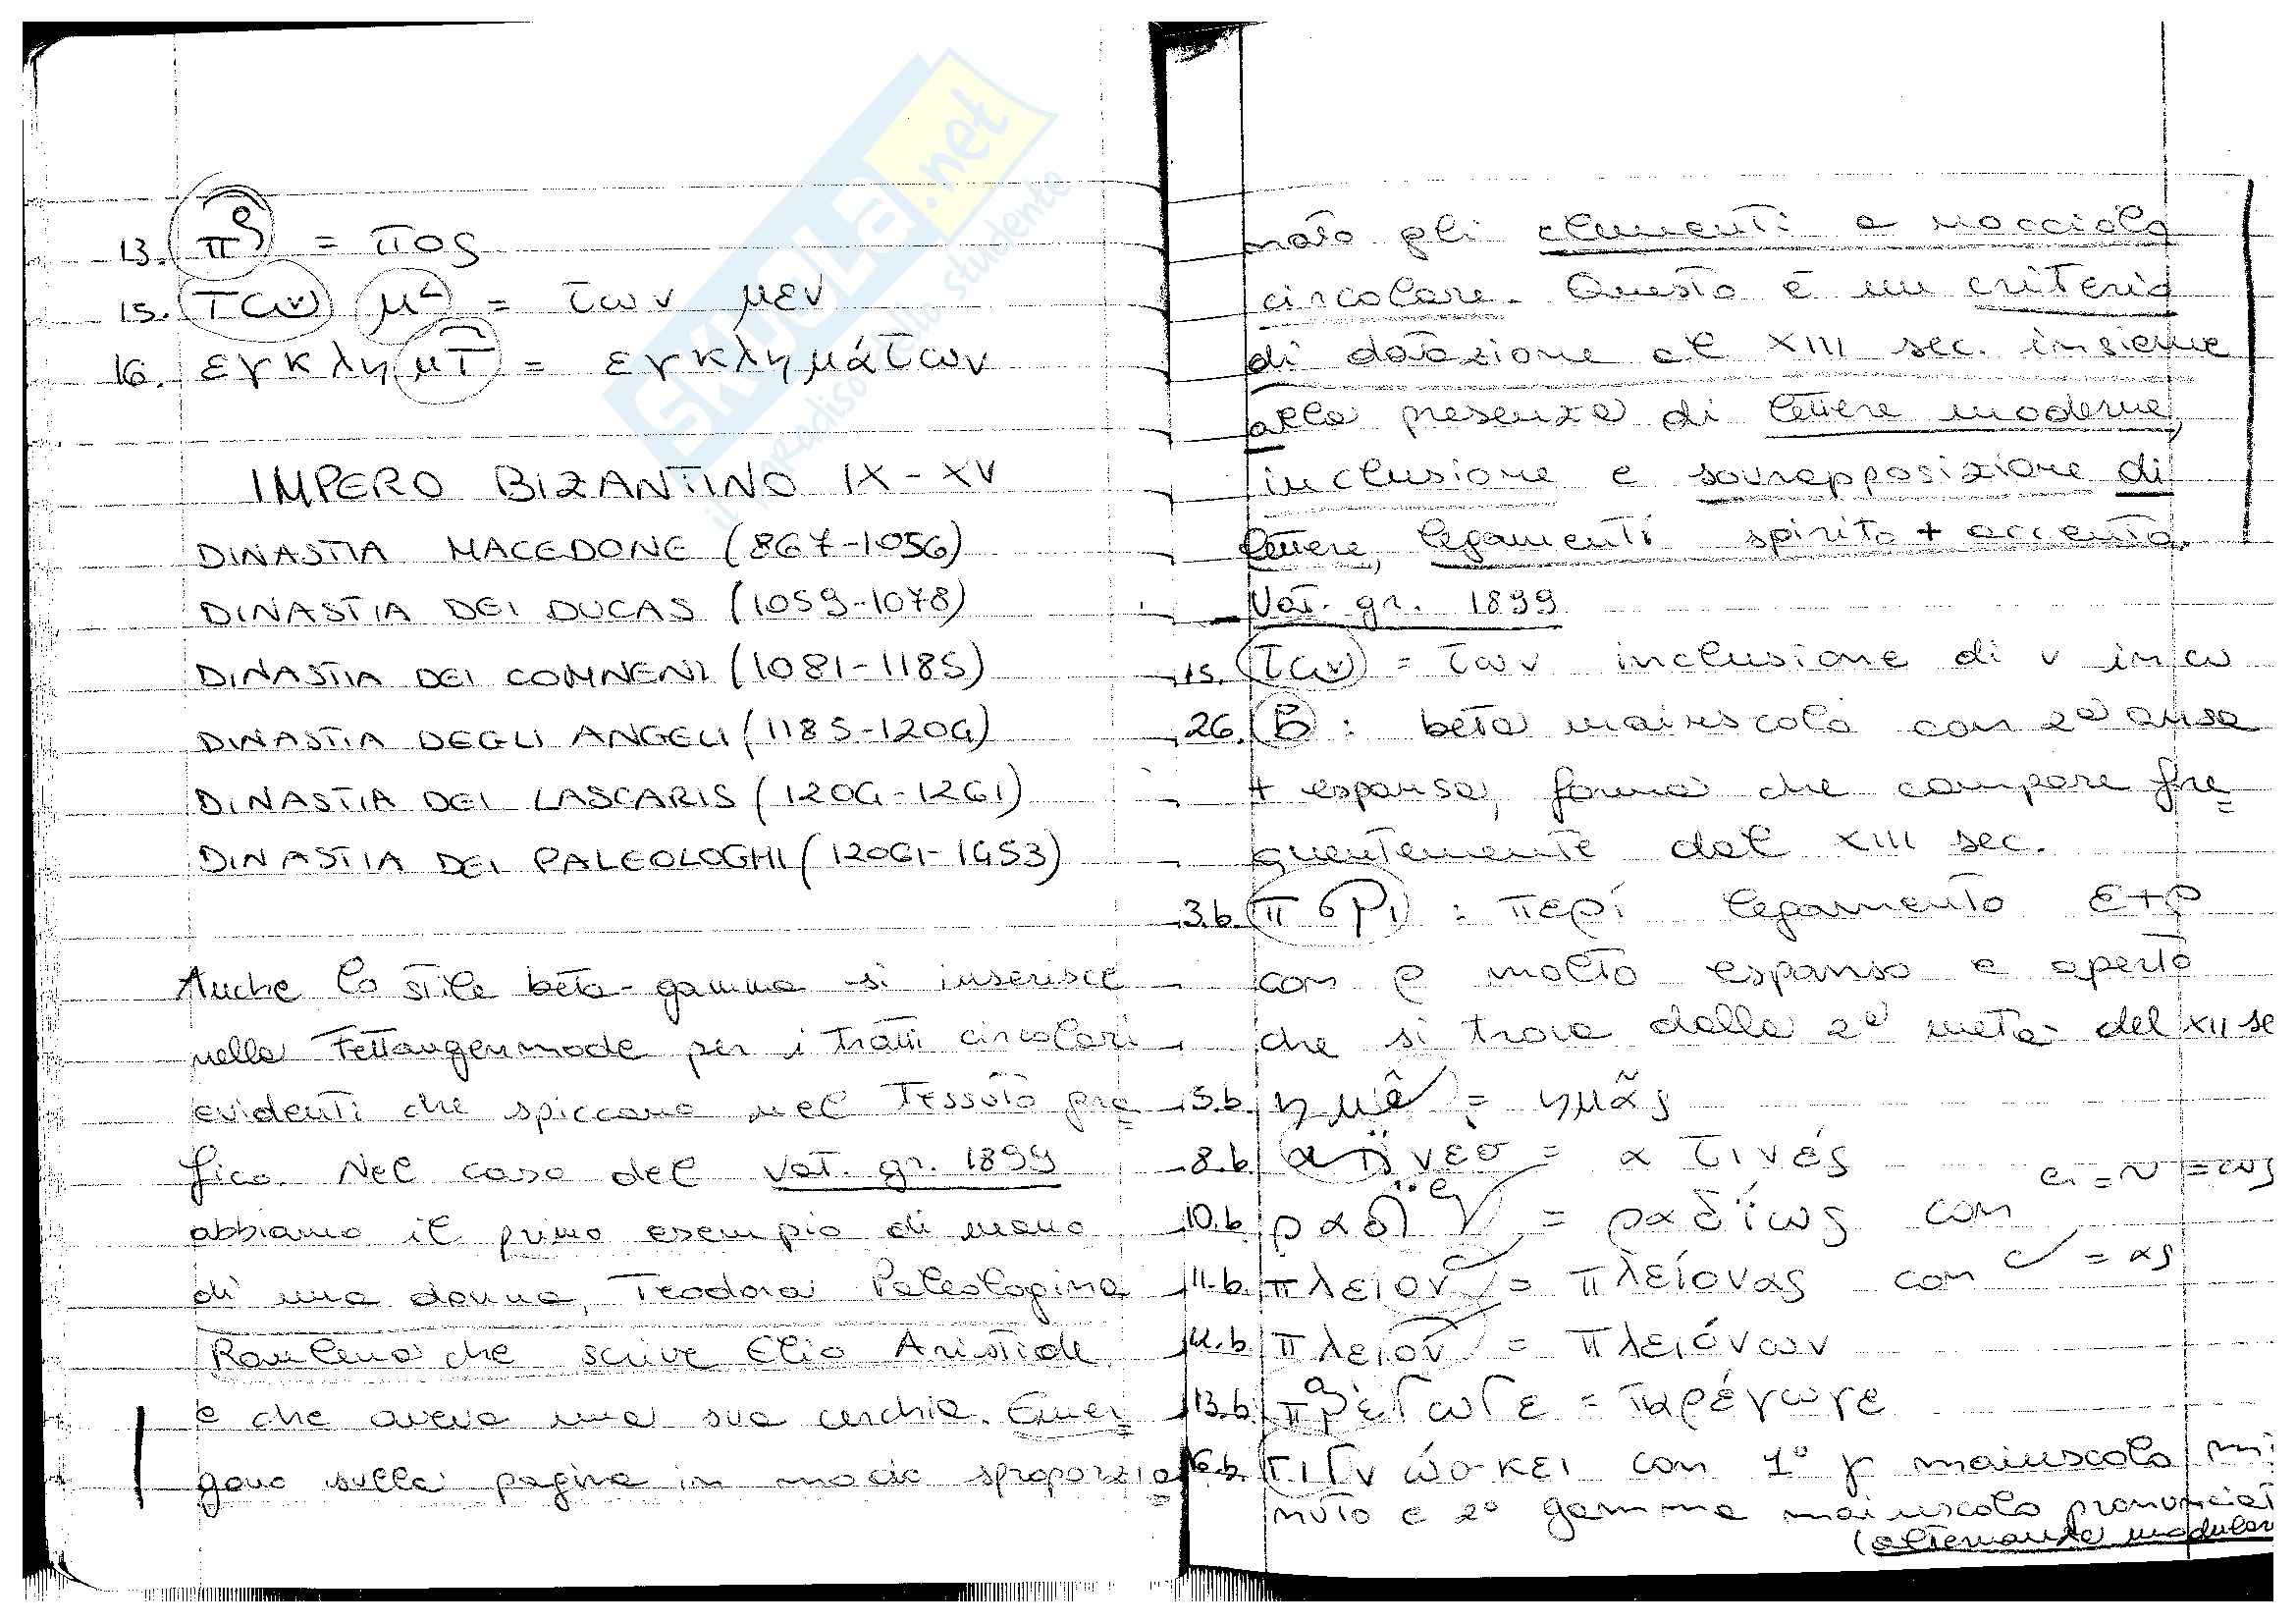 13. π ς = πος
15. των μ = των μεν
16. εγκλημτ = εγκλημάτων
IMPERO BIZANTINO IX - XV
DINASTIA MACEDONE (867-1056)
DINASTIA DEI DUCAS (1059-1078)
DINASTIA DEI COMNENI (1081-1185)
DINASTIA DEGLI ANGELI (1185-1204)
DINASTIA DEI LASCARIS (1204-1261)
DINASTIA DEI PALEOLOGHI (12061-1453)
Anche lo stile beta-gamma si inserisce
nella Fettaugenmode per i tratti circolari
evidenti che spiccano nel tessuto gra=
fico. Nel caso del Vat. gr. 1899
abbiamo il primo esempio di mano
di una donna, Teodora Paleologina
Raulena che scrive Elio Aristide
e che aveva una sua cerchia. Emer=
gono sulla pagina in modo sproporzio=
nato gli elementi a nocciolo
circolare. Questo è un criterio
di datazione al XIII sec. insieme
alla presenza di lettere moderne,
inclusione e sovrapposizione di
lettere, legamenti spirito + accento.
- Vat. gr. 1899
15. των = των inclusione di ν in ω
26. B : beta maiuscolo con 2ª ansa
+ espansa, forma che compare fre=
quentemente dal XIII sec.
3.b. περι : περί legamento ε+ρ
con ρ molto espanso e aperto
che si trova dalla 2ª metà del XII se
5.b. ημ = ημᾶς
8.b. ατινεσ = α τινές
10.b. ραδι = ραδίως con = ~ = ως
11.b. πλειον = πλείονας con = ας
12.b. πλειον = πλειόνων
13.b. πρέΓωΓε = παρέγωγε
16.b. ΓιΓνώσκει con 1° γ maiuscolo mi
nuto e 2° gamma maiuscolo pronunciat
(alternanza modular
SKUOLA.net
il paradiso dello studente